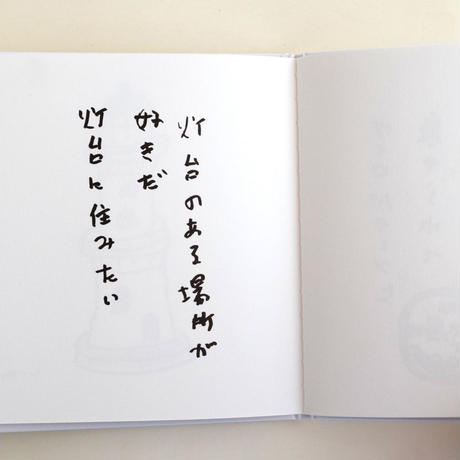 灯台のある場所が
好きだ
灯台に住みたい